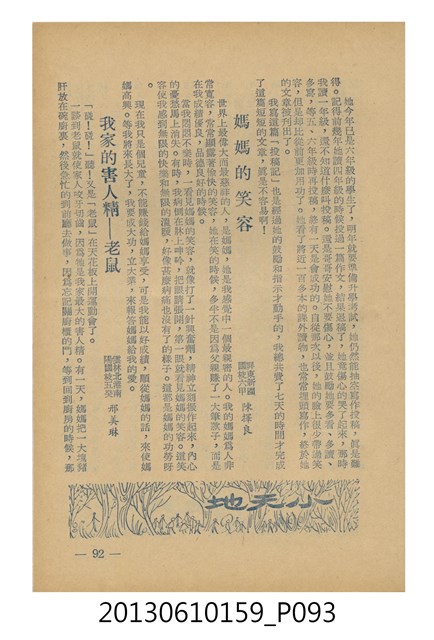 她今年已是六年級的學生了，明年就要準備升學考試，她仍然能抽空寫作投稿，眞是難
得。記得前幾年她讀四年級的時候投過一篇作文，結果退稿了，她竟傷心的哭了起來，那時
我讀一年級，還不知道什麼叫投稿。還是哥哥安慰她不要傷心，並且鼓勵她要多看、多讀、
多寫，等五、六年級時再投稿，總有一天是會成功的。自從那次以後，她的臉上很少帶過笑
容，但是却比從前更加用功了。她看了將近一百多本的課外讀物，也常常埋頭寫作，終於她
的文章被刊出了。
我寫這篇「投稿記」也是經過她的鼓勵和指示才動手的，我總共費了七天的時間才完成
了這篇短短的文章，眞是不容易啊！
媽媽的笑容
屏東新園國校六甲 陳擇良
世界上最偉大而最慈祥的人，是媽媽，她是我感覺中一個最親密的人。我的媽媽爲人非
常寬容，常常顯露着愉快的笑容，她在笑的時候，多半不是因爲父親賺了一大筆款子，而是
在我成績優良，品德良好的時候。
當我悶悶不樂時，一看見媽媽的笑容，就像打了一針興奮劑，精神立刻振作起來，內心
的憂愁馬上消失。有時，我病倒在牀上呻吟，把眼睛張開，第一眼就看見媽媽的笑容。這笑
容使我感到無限的快樂和無限的溫暖，好像甚麼病痛也沒有了的樣子。這都是媽媽的功勞呀
。
現在我只是個兒童，不能賺錢給媽媽享受，可是我能以好成績，順從媽媽的話，來使媽
媽高興。等我將來長大了，我要成大功，立大業，來報答媽媽給我的愛。
我家的害人精——老鼠
雲林北港南陽國校五癸 郝美琳
「碰！碰！」聽！又是「老鼠」在天花板上開運動會了。
一談到老鼠就使家人咬牙切齒，因爲牠是我家最大的害人精。有一天，媽媽把一大塊豬
肝放在碗廚裏，然後急忙的到前廳去做事，因爲忘記關廚櫃的門，等到回到廚房的時候，那
小天地
— 92 —
20130610159_P093